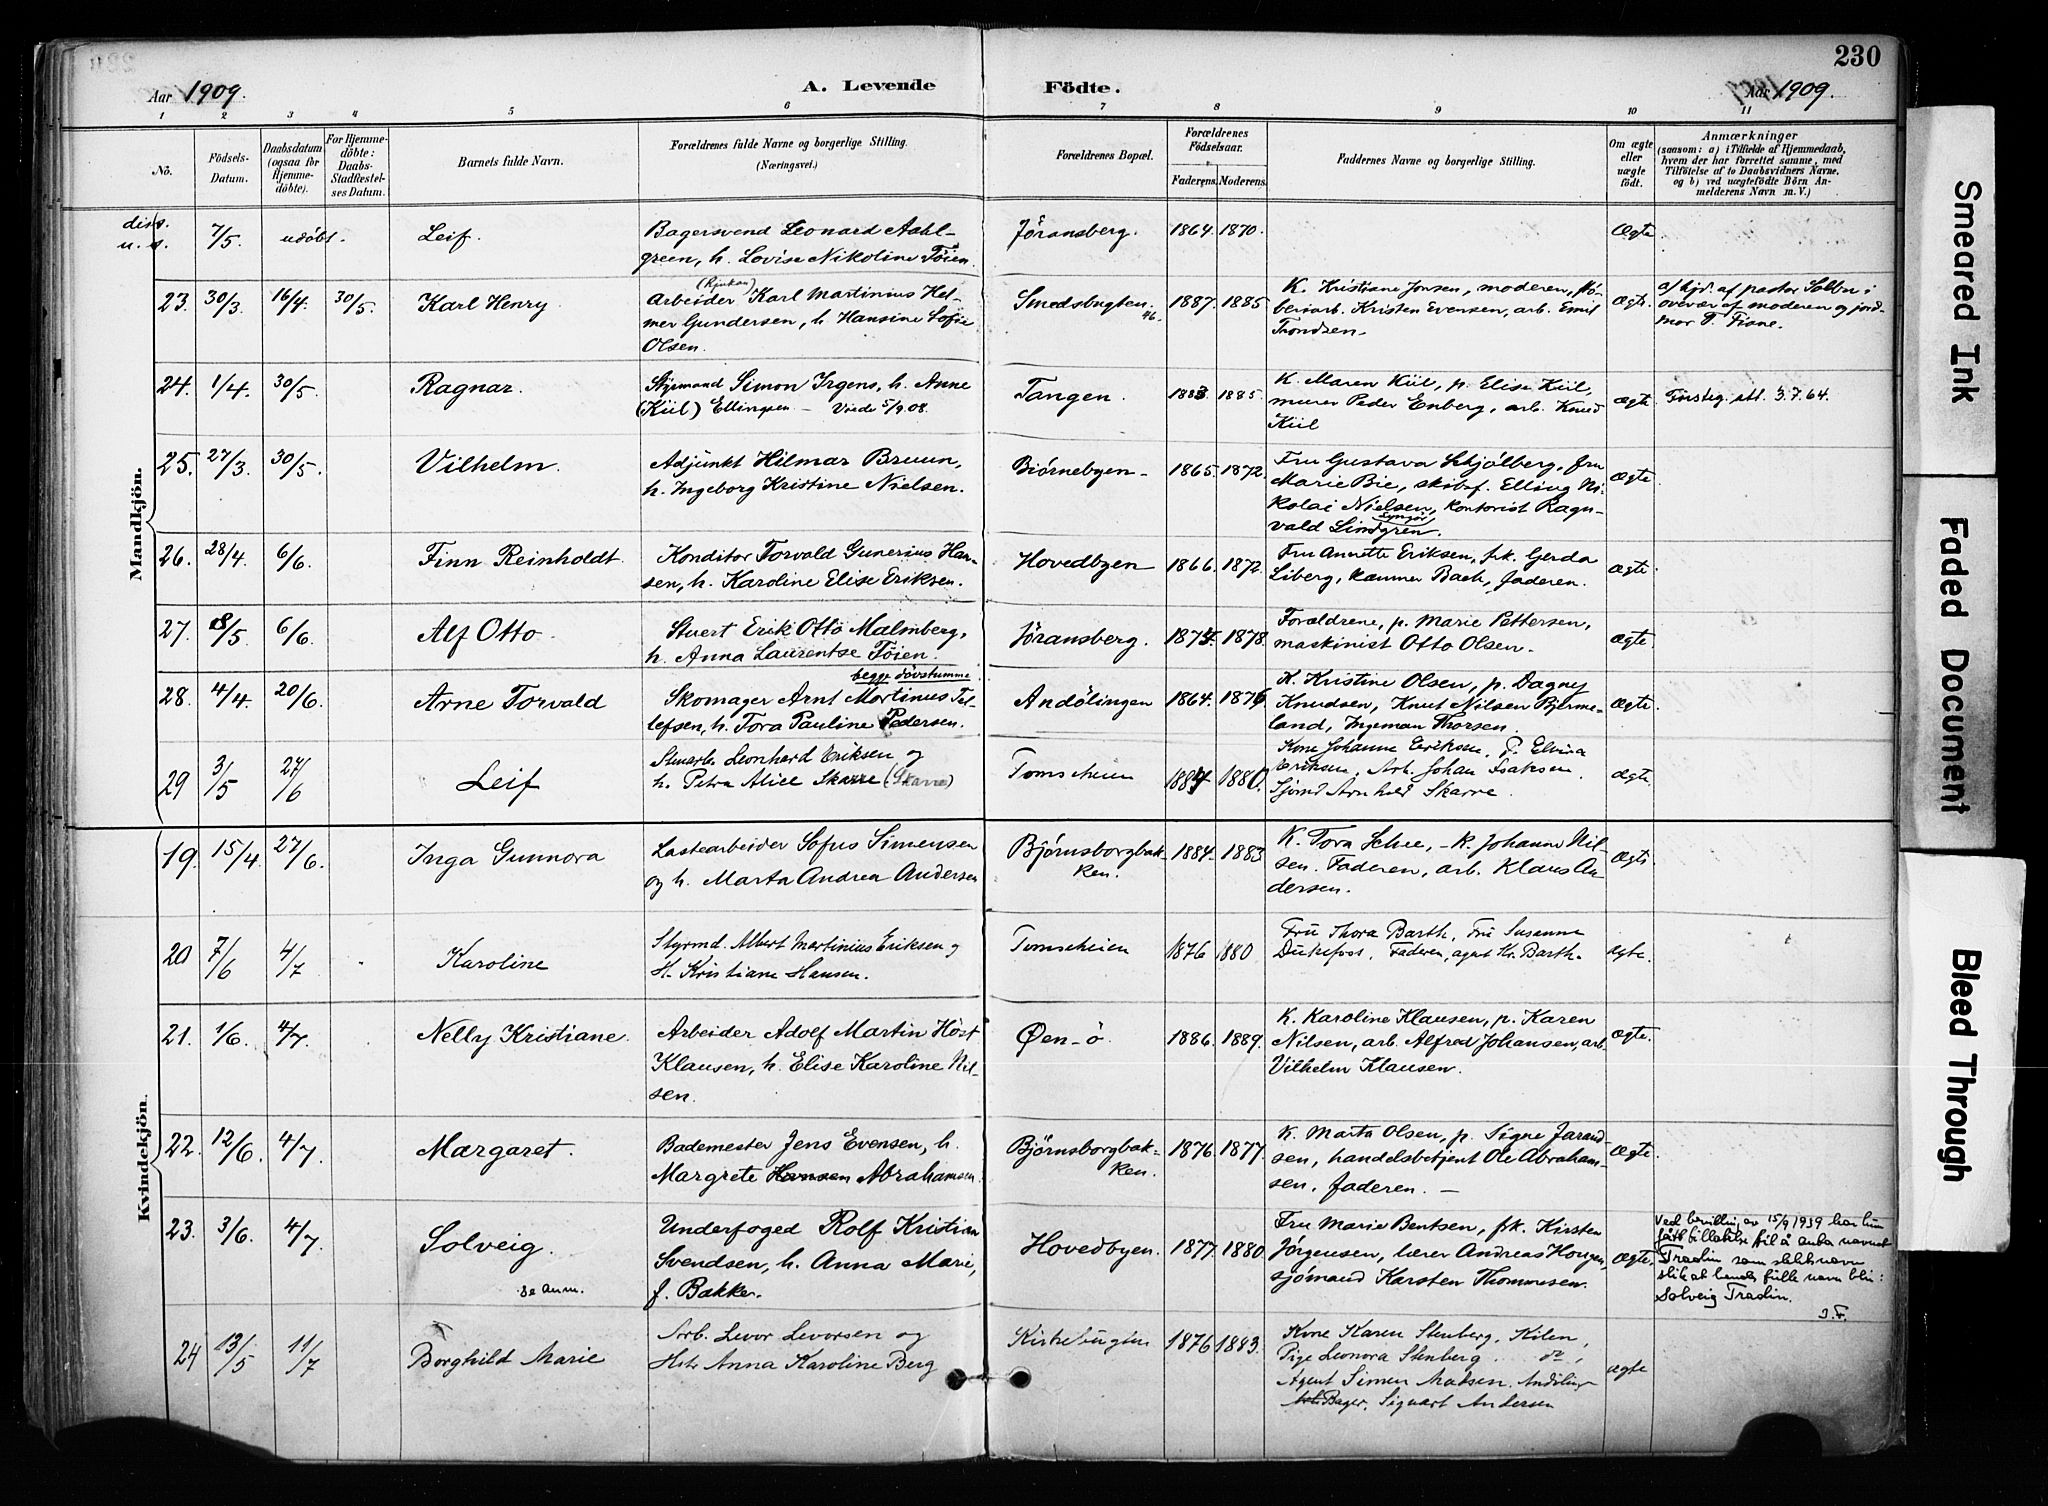 230
Aar 1909.
A. Levende Födte.
Aar 1909.
1 2 3 4 5 6 7 8 9 10 11
No.
Födsels-Datum.
Daabsdatum (ogsaa for Hjemme-döbte).
For Hjemme-döbte: Daabs-Stadfæstel-ses Datum.
Barnets fulde Navn.
Forældrenes fulde Navne og borgerlige Stilling.
(Næringsvei.)
Forældrenes Bopæl.
Forældrenes Födselsaar.
Faderens. Moderens.
Faddernes Navne og borgerlige Stilling.
Om ægte eller uægte födt.
Anmærkninger
(saasom: a) i Tilfælde af Hjemmedaab,
hvem der har forrettet samme, med
Tilföielse af to Daabsvidners Navne,
og b) ved uægtefödte Börn An-
melderens Navn m. V.)
Mandkjön.
diss. u. s. 7/5. udöbt. Leif.
Bagersvend Leonard Aahl-
green, h. Lovise Nikoline Töien.
Jöransberg. 1864. 1870. Ægte.
23. 30/3. 16/4. 30/5. Karl Henry
(Rjukan)
Arbeider Karl Martinius Hel-
mer Gundersen, h. Hansine Sofie
Olsen.
Smedsbugten 46. 1887. 1885.
K. Kristiane Jonsen, moderen,
Kristen Evensen, arb. Emil
Trondsen.
ægte.
a/ hjd. af pastor Solberg i
overvær af moderen og jord-
mor T. Fisne.
24. 1/4. 30/5. Ragnar.
Styrmand Simon Irgens, h. Anne
(Kiil) Ellingsen - Viede 5/9.08.
Tangen. 1883 1885.
K. Maren Kiil, p. Elise Kiil,
murer Peder Enberg, arb. Knud
Kiil
ægte
Førsteg. att. 3.7.64.
25. 27/3. 30/5. Vilhelm.
Adjunkt Hilmar Bruun,
h. Ingeborg Kristine Nielsen.
Biörnebyen 1865. 1872.
Fru Gustava Schjölberg, fru
Marie Bie, skibsf. Elling Ni-
kolai Nielsen, kontorist Ragn-
vald Lindgren.
ægte
26. 28/4. 6/6. Finn Reinholdt.
Konditor Torvald Gunerius Han-
sen, h. Karoline Elise Eriksen.
Hovedbyen 1866. 1872.
Fru Annette Eriksen, frk. Gerda
Liberg, kæmner Bach, faderen.
ægte
27. 8/5. 6/6. Alf Otto.
Stuert Erik Otto Malmberg,
h. Anna Laurentse Töien.
Jöransberg. 1874. 1878.
Forældrene, p. Marie Pettersen,
maskinist Otto Olsen.
ægte
28. 4/4. 20/6. Arne Torvald
begge dövstumme
Skomager Arnt Martinus Tel-
lefsen, h. Tora Pauline Pedersen.
Andölingen 1864. 1876
K. Kristine Olsen, p. Dagny
Knudsen, Knut Nilsen Bjerme-
land, Ingeman Thorsen.
ægte.
29 3/5 27/6 Leif
Stuert Leonhard Eriksen og
h. Petra Alice Skarre (Skarre)
Tomscheien 1884 1880.
Kone Johanne Eriksen, P. Elvira
Eriksen, Arb. Johan Isaksen.
Sjömd Arnhold Skarre.
ægte
Kvindekjön.
19. 15/4. 27/6. Inga Gunnora
Lastearbeider Sofus Simensen
og h. Marta Andrea Andersen
Björnsborgbak-
ken. 1884. 1883
K. Tora Schee, - K. Johanne Nil-
sen. Faderen, arb. Klaus An-
dersen.
Ægte.
20 7/6 4/7 Karoline
Styrmd. Albert Martinius Eriksen og
H. Kristiane Hansen.
Tomscheien 1876 1880
Fru Thora Barth, Fru Susanne
Dukefoss. Faderen, agent Kr. Barth.
ægte.
21. 1/6. 4/7. Nelly Kristiane.
Arbeider Adolf Martin Höst
Klausen, h. Elise Karoline Nil-
sen.
Øen-ö. 1886. 1889.
K. Karoline Klausen, p. Karen
Nilsen, arb. Alfred Johansen, arb.
Vilhelm Klausen.
ægte.
22. 12/6. 4/7. Margaret.
Bademester Jens Evensen, h.
Margrete Hansen Abrahamsen.
Björnsborgbak-
ken. 1876. 1877.
K. Marta Olsen, p. Signe Jarand-
sen, handelsbetjent Ole Abraham-
sen, faderen. -
Ægte.
23. 3/6. 4/7. Solveig.
se anm.
Underfoged Rolf Kristian
Svendsen, h. Anna Marie,
f. Bakke.
Hovedbyen. 1877. 1880.
Fru Marie Bentsen, frk. Kirsten
Jörgensen, lærer Andreas Hougen,
sjömand Karsten Thommesen.
Ægte.
Ved bevilling av 15/9 1939 har hun
fått tillatelse til å anta navnet
Tradin som slektsnavn
slik at hendes fulle navn blir:
Solveig Tradin.
J.F.
24 13/5 11/7 Borghild Marie
Arb. Levor Levorsen og
Hst. Anna Karoline Berg
Kirkebugten 1876 1883.
Kone Karen Stenberg. Kilen,
Pige Leonora Stenberg. do,
Agent Simen Madsen. Andöling
Bager. Sigvart Andersen
ægte
Smeared Ink
Faded Document
Bleed Through